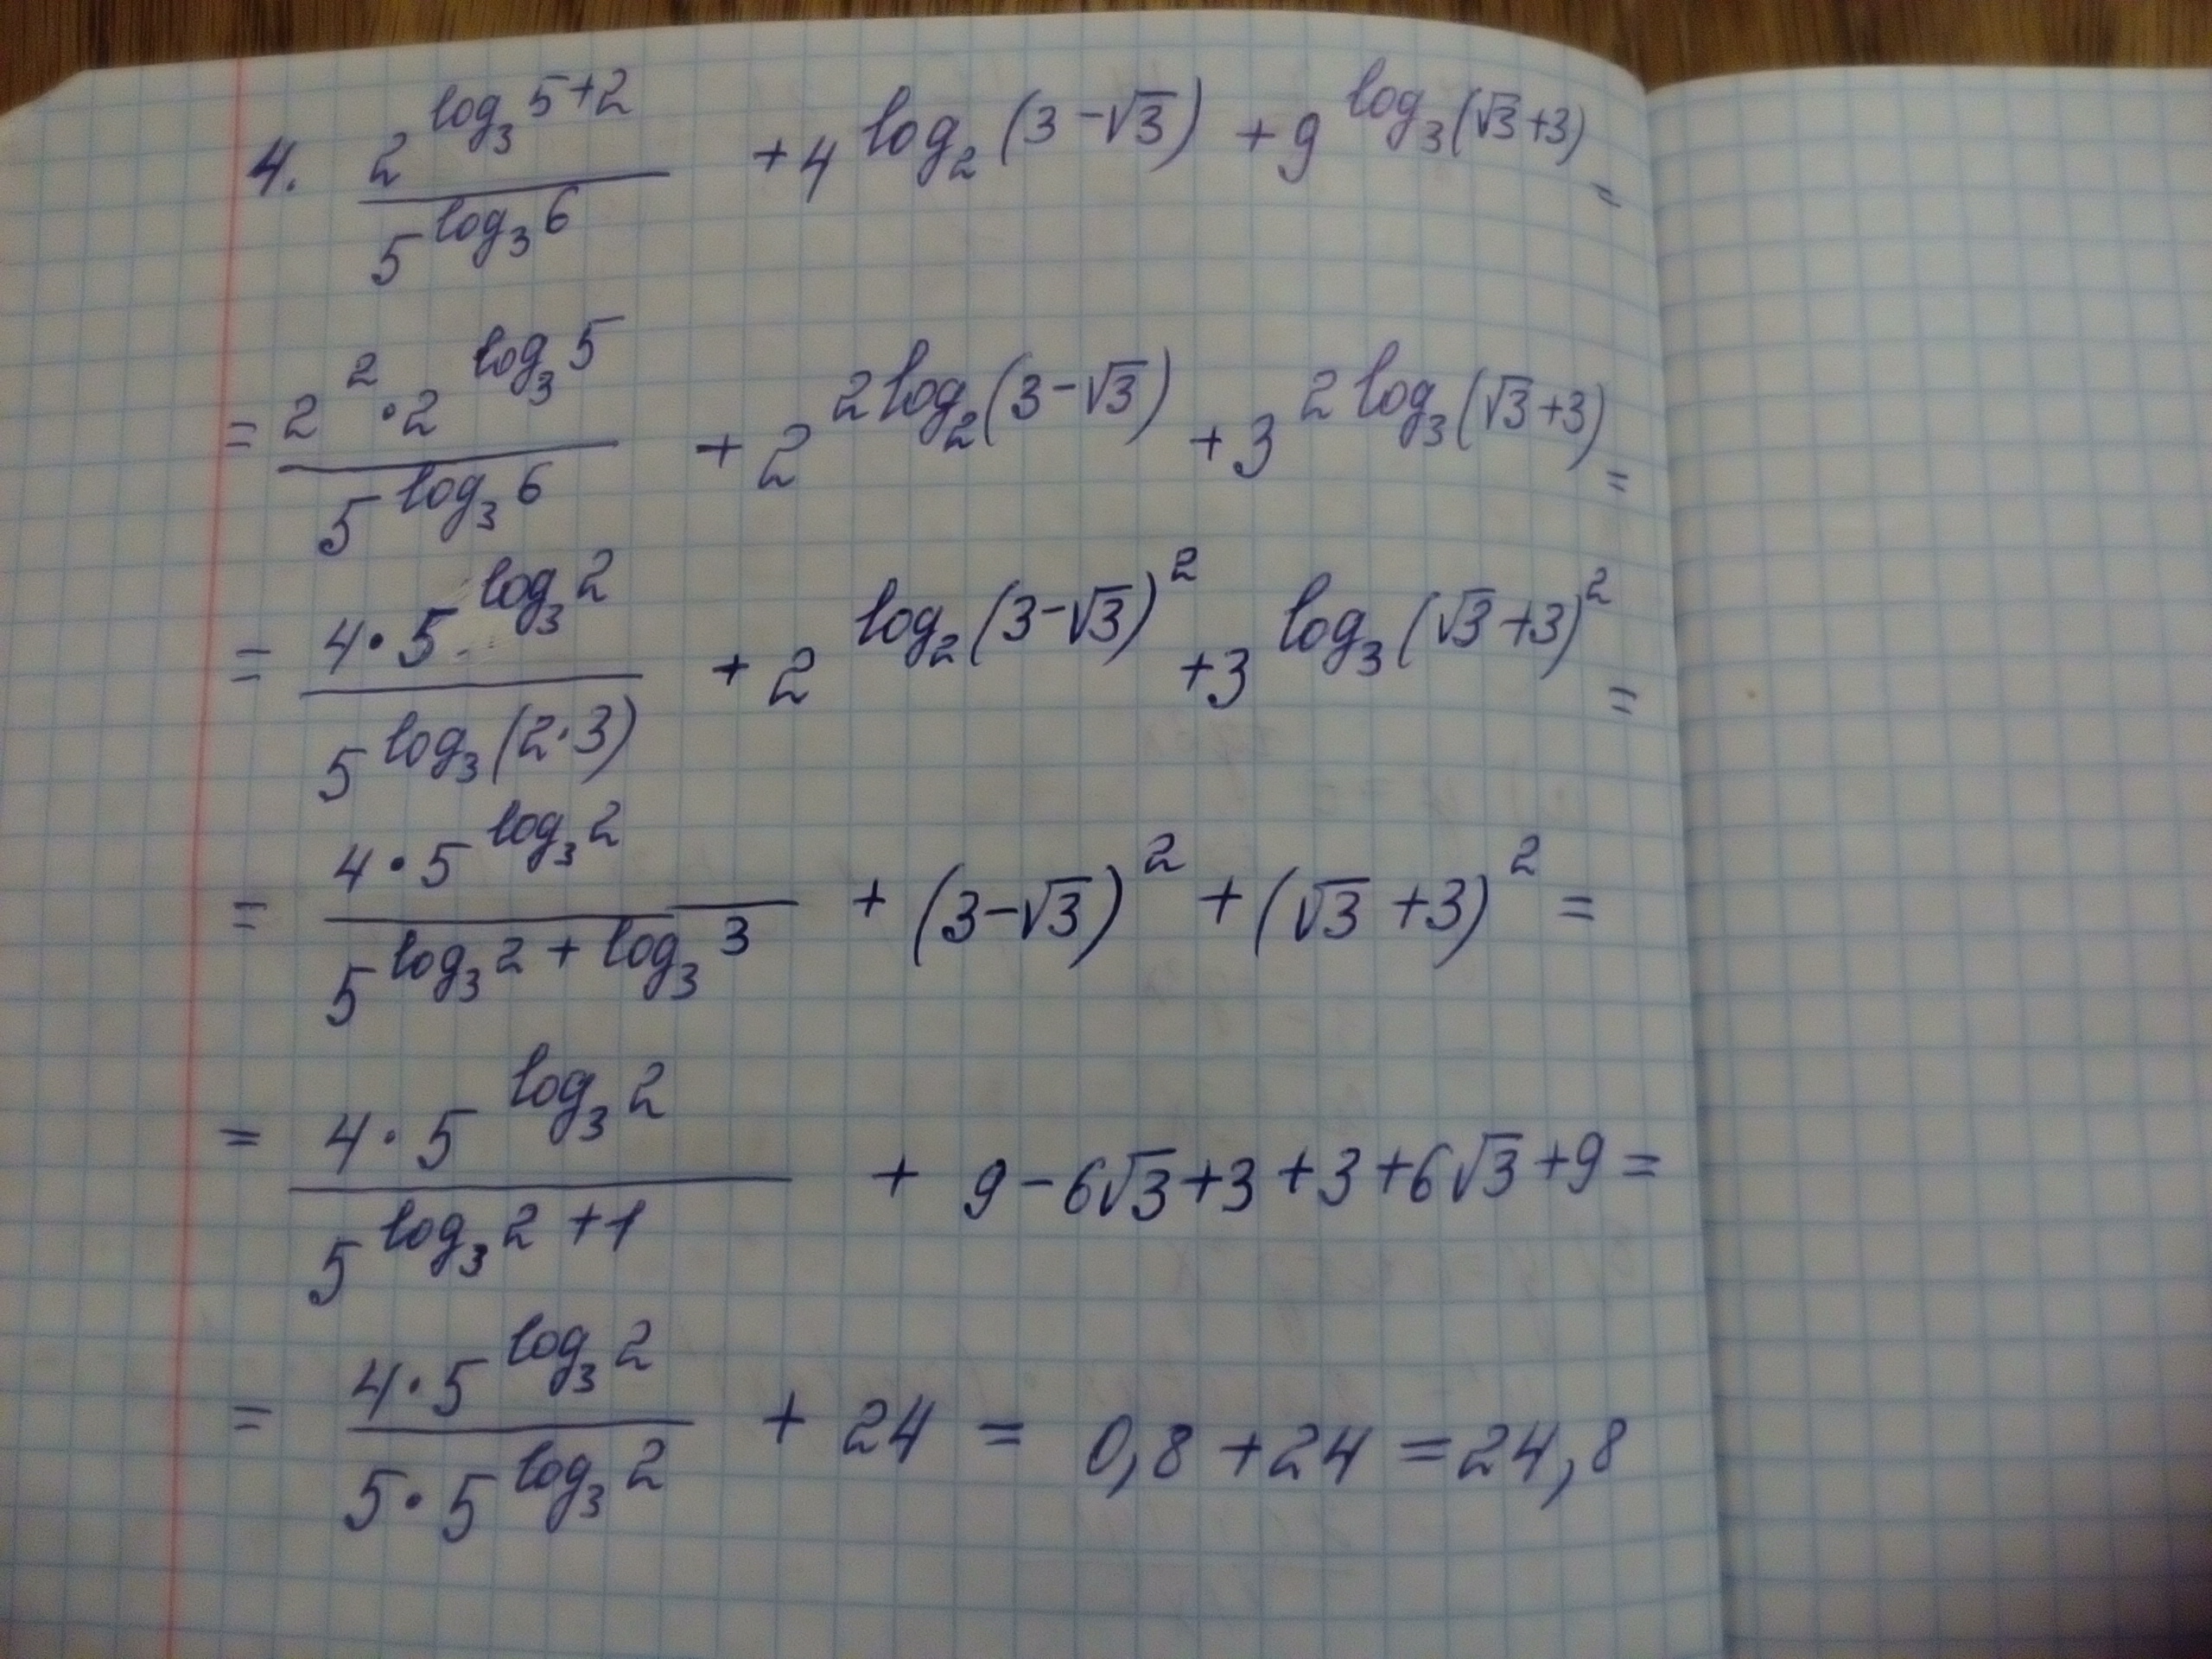 4. 2^(log₃5+2) / 5^(log₃6) + 4^(log₂(3-√3)) + 9^(log₃(√3+3)) =
= 2²·2^(log₃5) / 5^(log₃6) + 2^(2log₂(3-√3)) + 3^(2log₃(√3+3)) =
= 4·5^(log₃2) / 5^(log₃(2·3)) + 2^(log₂(3-√3)²) + 3^(log₃(√3+3)²) =
= 4·5^(log₃2) / 5^(log₃2+log₃3) + (3-√3)² + (√3+3)² =
= 4·5^(log₃2) / 5^(log₃2+1) + 9-6√3+3+3+6√3+9 =
= 4·5^(log₃2) / 5·5^(log₃2) + 24 = 0,8+24 = 24,8